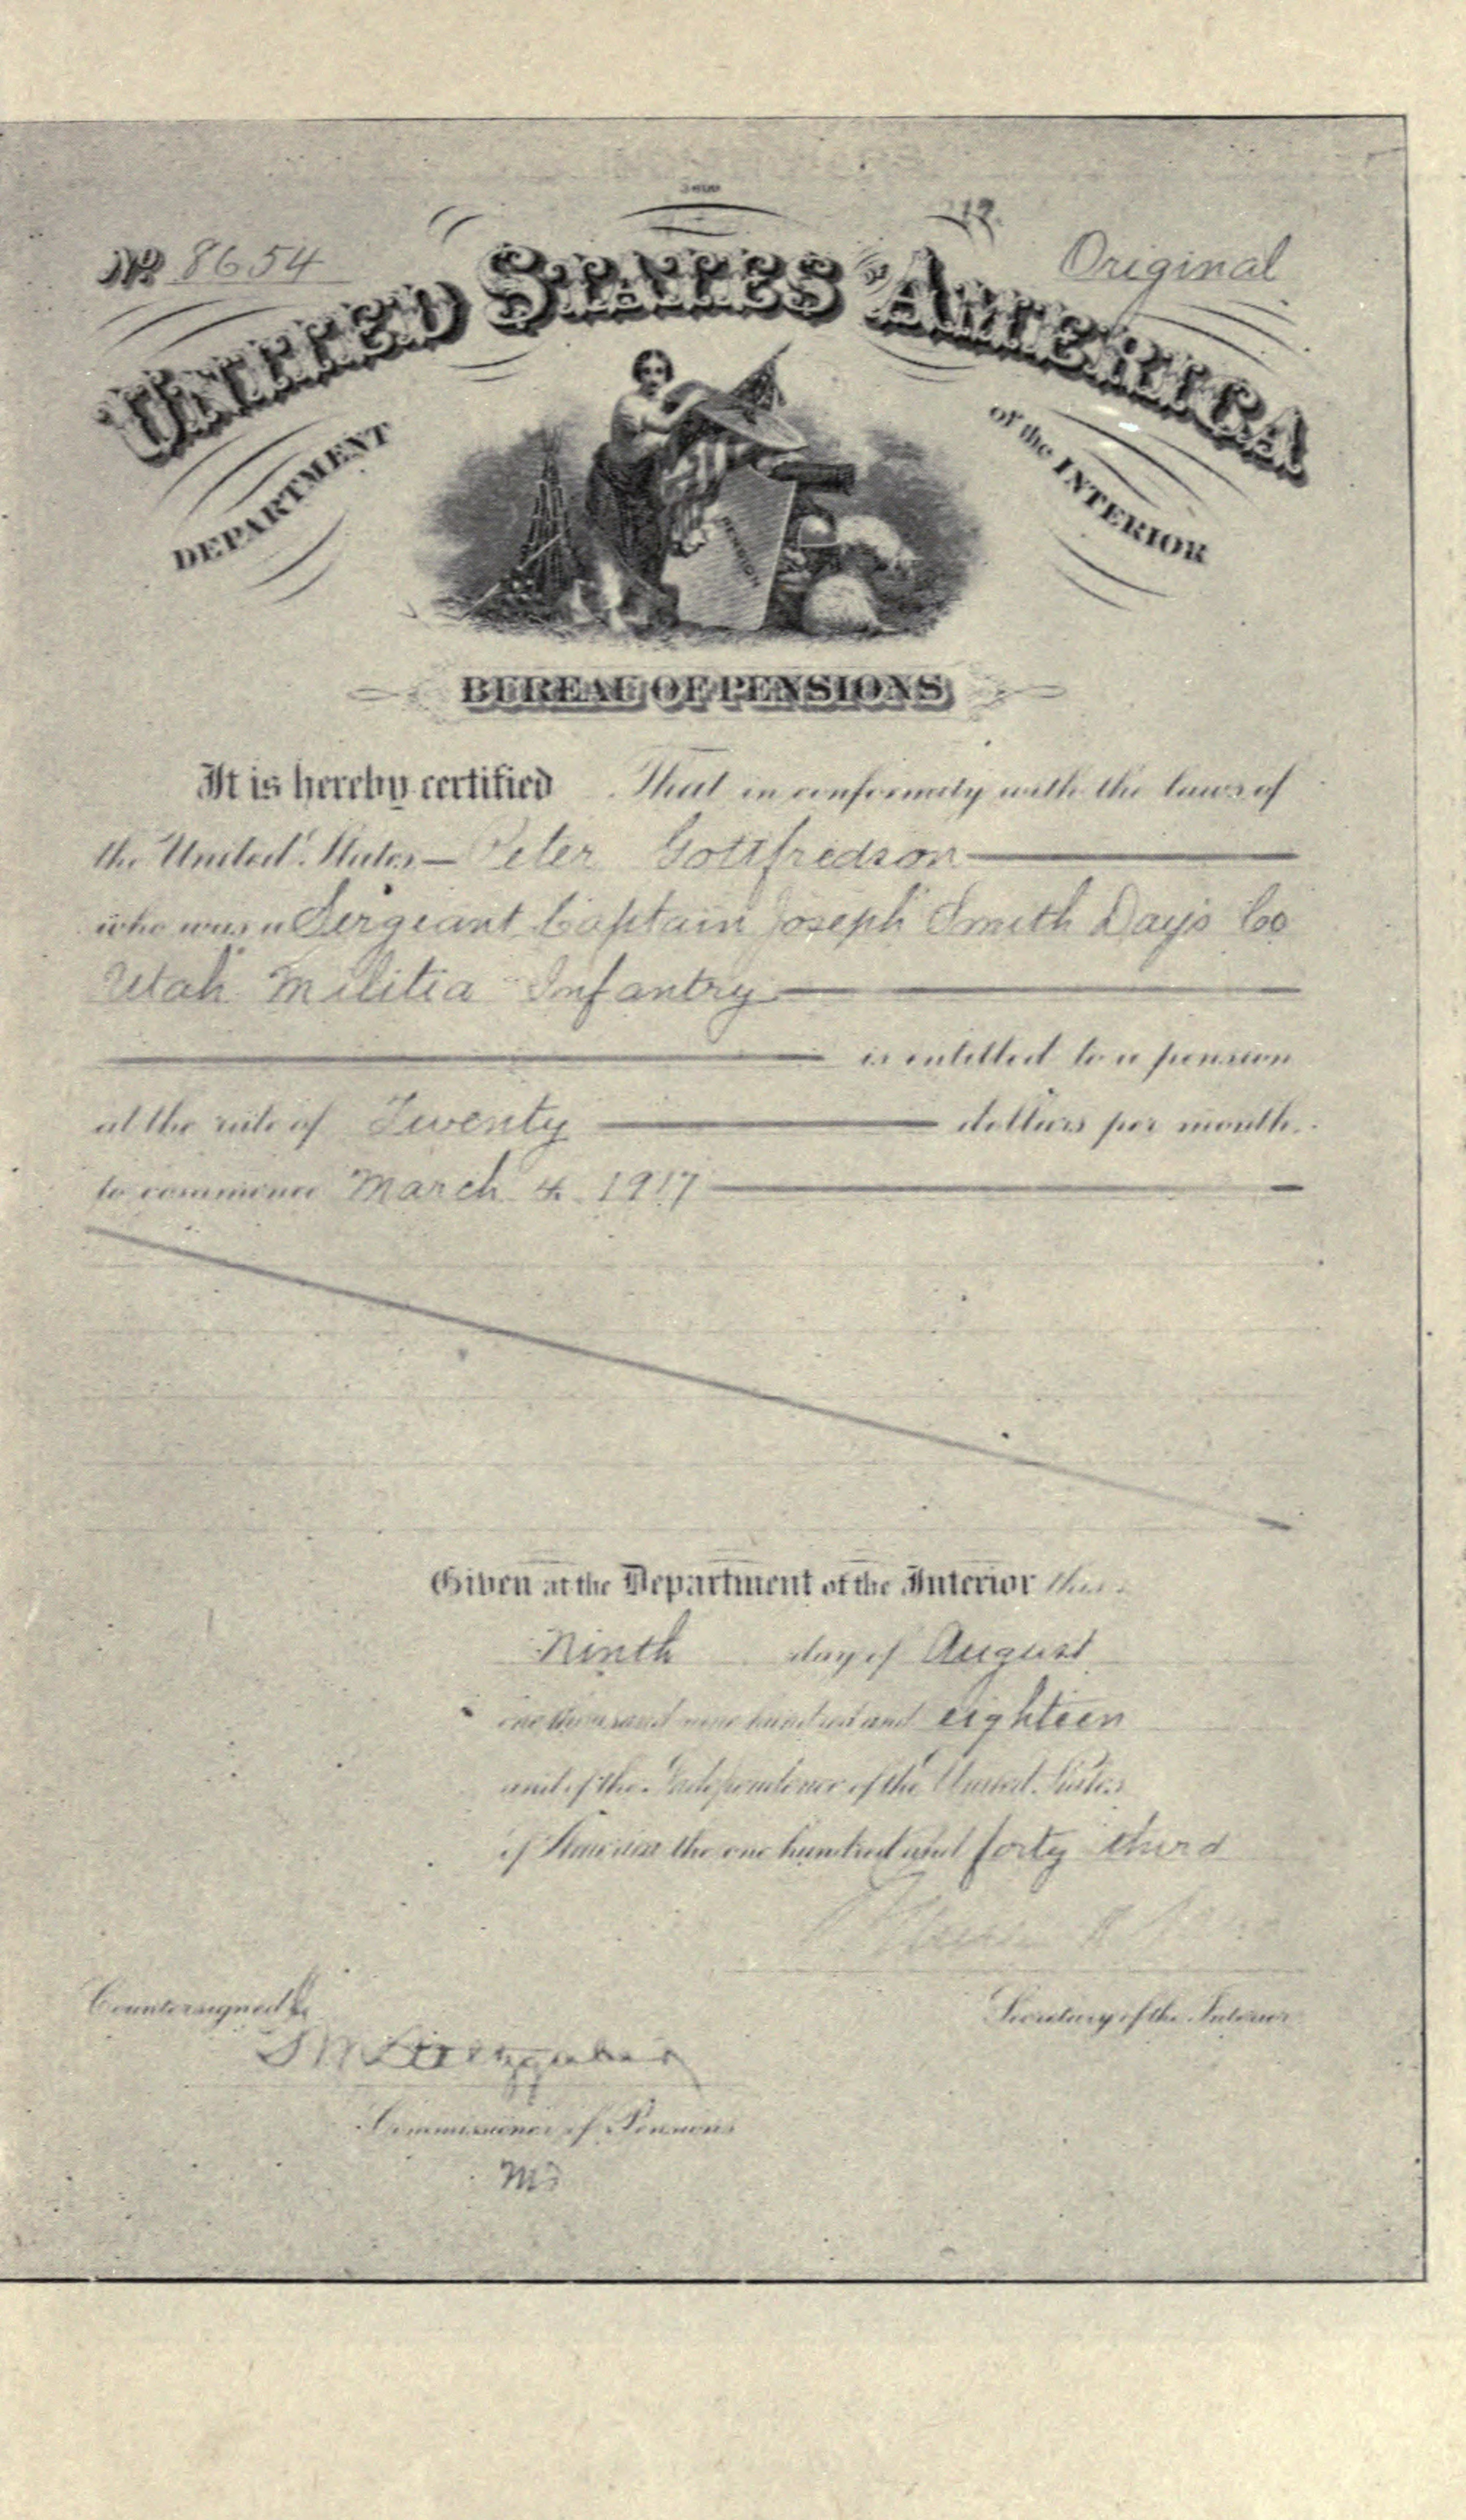 No 8654
Original
UNITED STATES OF AMERICA
DEPARTMENT of the INTERIOR
PENSION
BUREAU OF PENSIONS
It is hereby certified That in conformity with the laws of
the United States Peter Gottfredson
who was a Sergeant Captain Joseph Smith Day's Co
Utah Militia Infantry
is entitled to a pension
at the rate of Twenty dollars per month
to commence March 4 1917
Given at the Department of the Interior this
Ninth day of August
one thousand nine hundred and eighteen
and of the Independence of the United States
of America the one hundred and forty third
Countersigned
Secretary of the Interior
Commissioner of Pensions